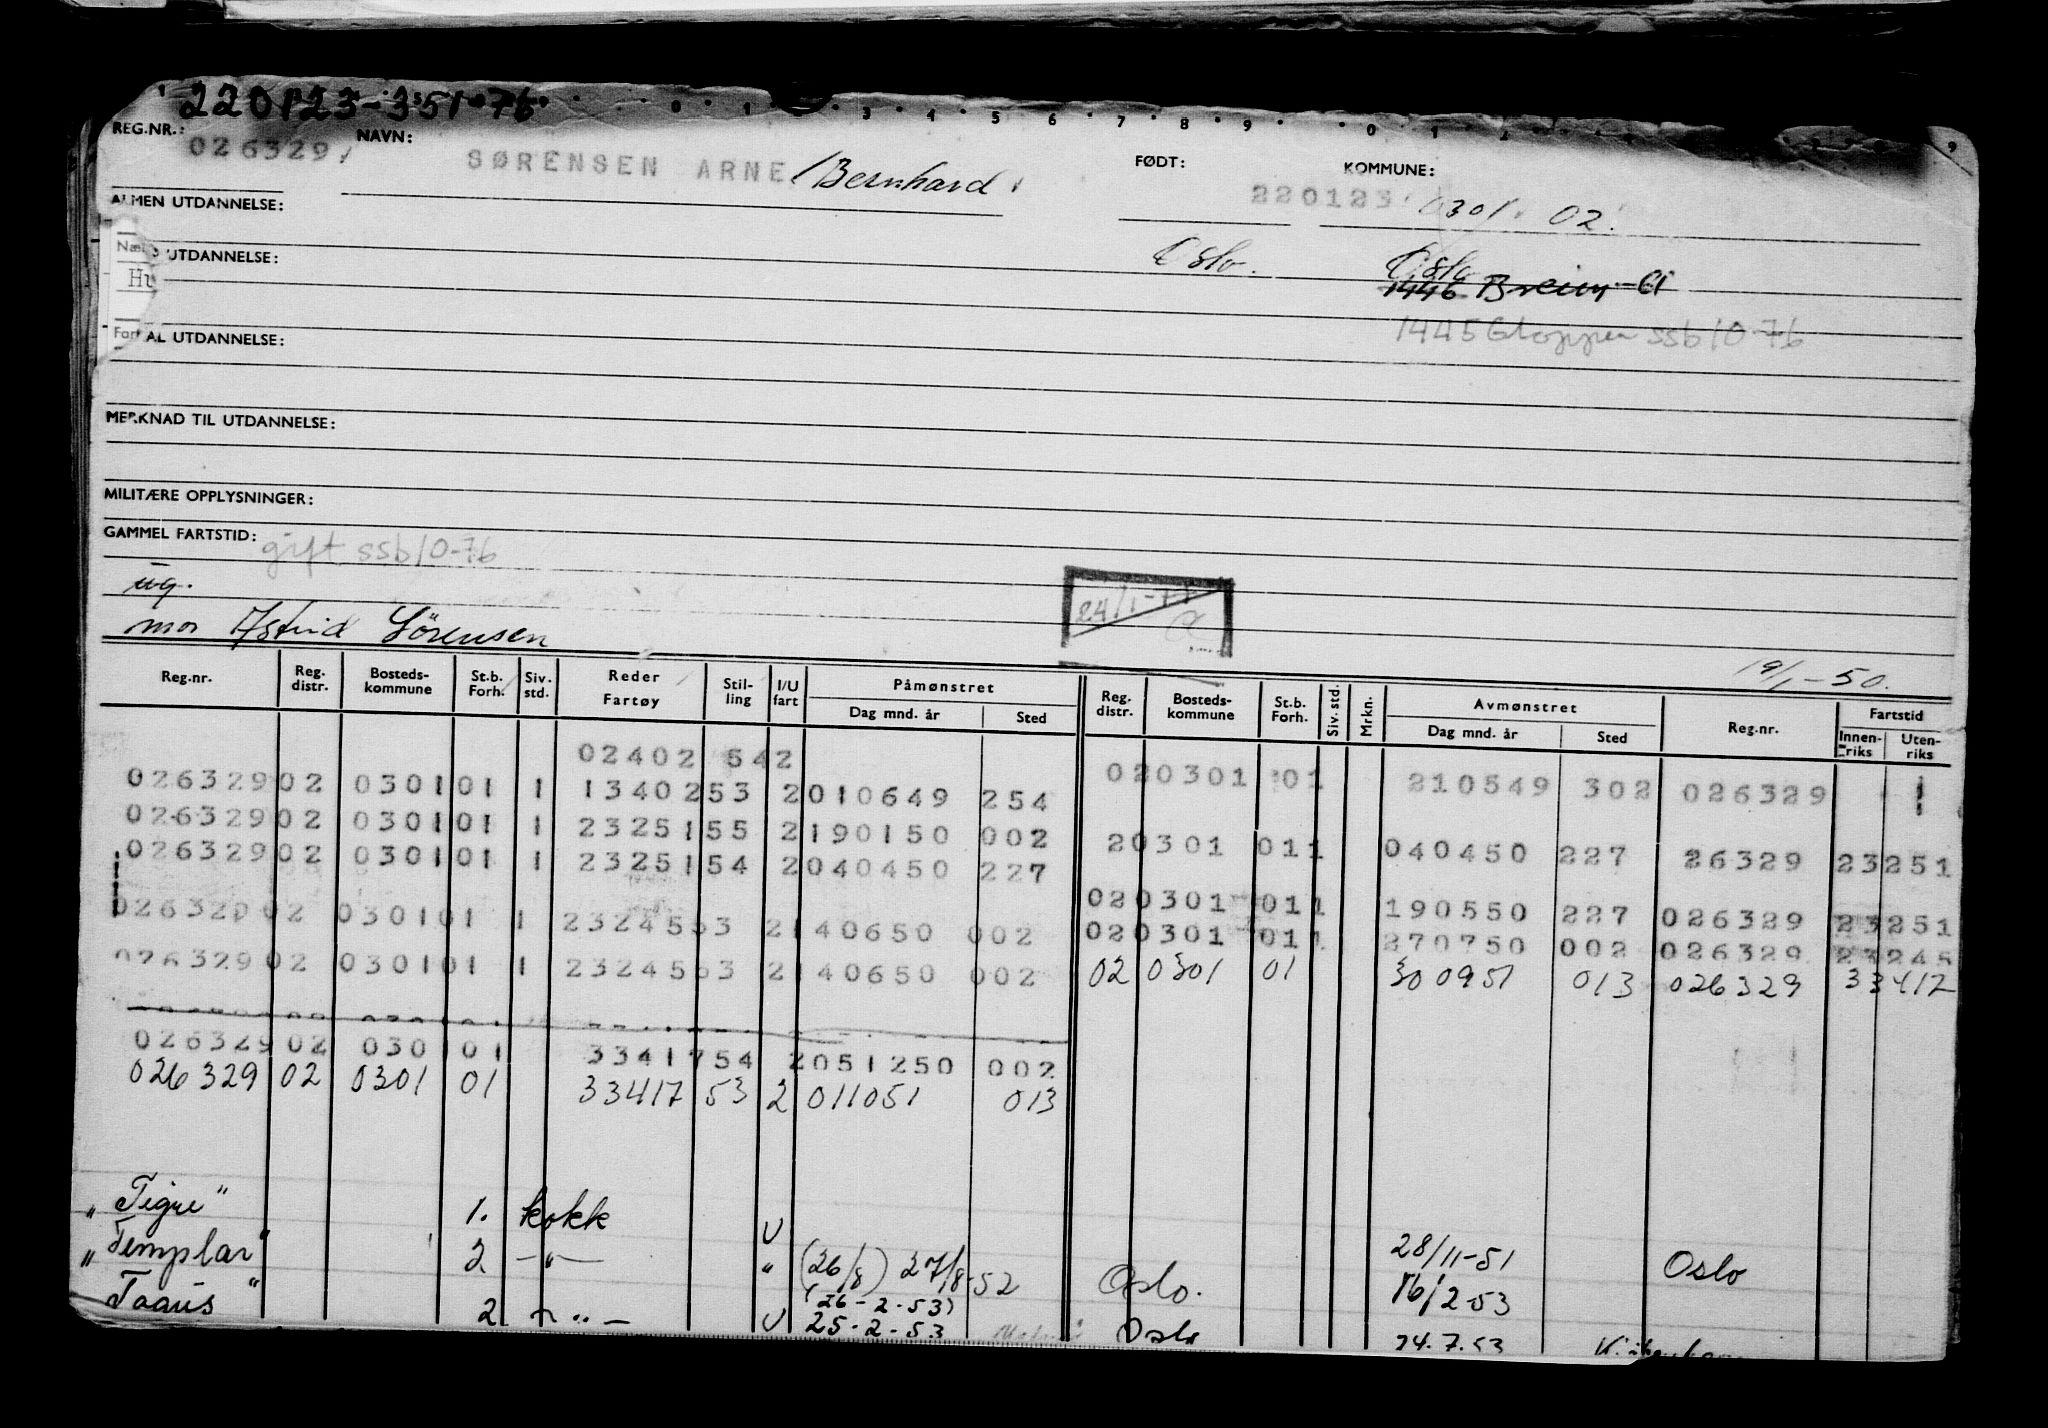 220123-351-76
REG.NR.: 026329 NAVN: SØRENSEN ARNE Bernhard FØDT: 220123 KOMMUNE: 0301 02
ALMEN UTDANNELSE:
Oslo. Oslo
UTDANNELSE: 1446 Breim
Hu
1445 Gloppen ssb 10-76
AL UTDANNELSE:
MERKNAD TIL UTDANNELSE:
MILITÆRE OPPLYSNINGER:
GAMMEL FARTSTID: gift ssb 10-76
ug.
24/1-77
mor Astrid Sörensen
19/1-50.
Reg.nr. Reg. distr. Bosteds-kommune St.b. Forh. Siv. std. Reder Fartøy Stil-ling I/U fart Påmønstret Dag mnd. år Sted Reg. distr. Bosteds-kommune St.b. Forh. Siv. std. Mrkn. Avmønstret Dag mnd. år Sted Reg.nr. Fartstid Innen-riks Uten-riks
02402 542 020301 01 210549 302 026329
026329 02 0301 01 1 13402 53 2 010649 254
026329 02 0301 01 1 23251 55 2 190150 002 20301 011 040450 227 26329 23251
026329 02 0301 01 1 23251 54 2 040450 227
020301 011 190550 227 026329 23251
026329 02 0301 01 1 23245 53 2 140650 002 020301 011 270750 002 026329 23245
026329 02 0301 01 1 23245 53 2 140650 002 02 0301 01 300951 013 026329 33417
026329 02 0301 01 33417 54 2 051250 002
026329 02 0301 01 33417 53 2 011051 013
"Tigre" 1. kokk U 28/11-51 Oslo
"Templar" 2 —"— " (26/8) 27/8-52 Oslo. 16/2-53
(26-2-53)
Taaus" 2 U 25-2-53 Oslo 24.7.53